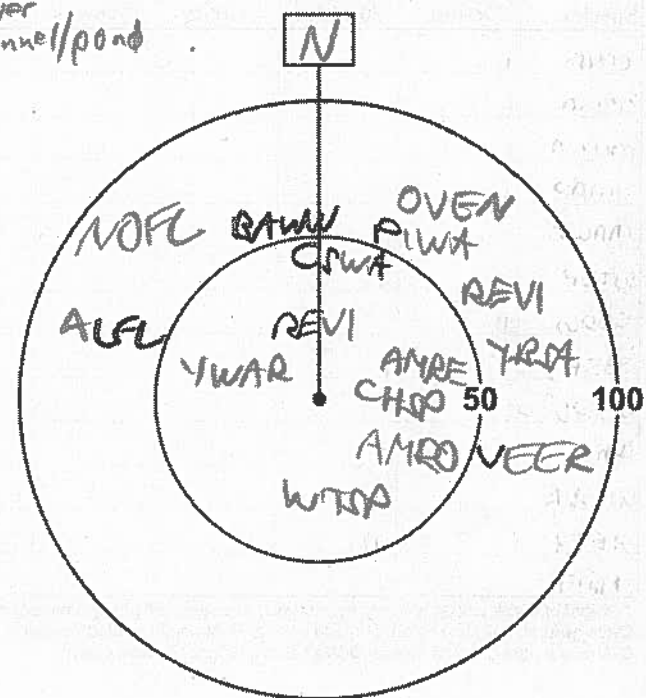 nnel/pond
N
OVEN
NOFL
BAWW
PIWA
CSWA
REVI
ALFL
REVI
YWAR
AMRE
CHSP
50
100
AMRO
VEER
WTSP